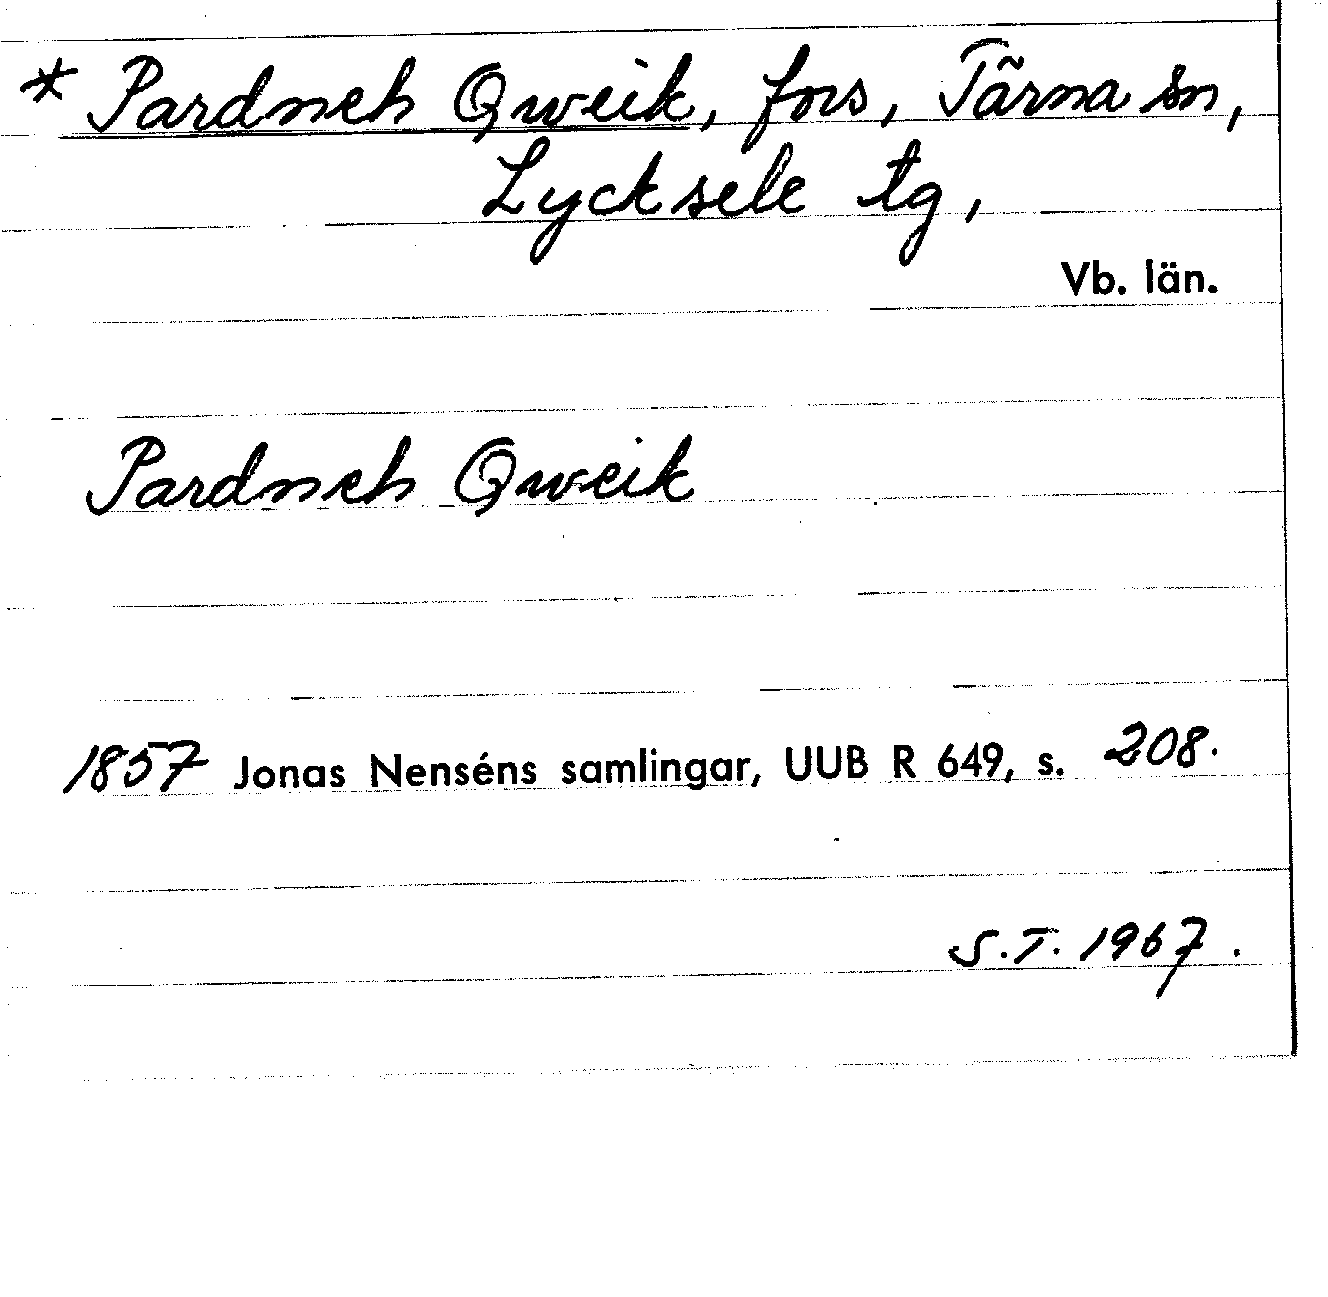 * Pardneh Qweik, fors, Tärna sn,
Lycksele tg,
Vb. län.
Pardneh Qweik
1857 Jonas Nenséns samlingar, UUB R 649, s. 208.
S.T. 1967.